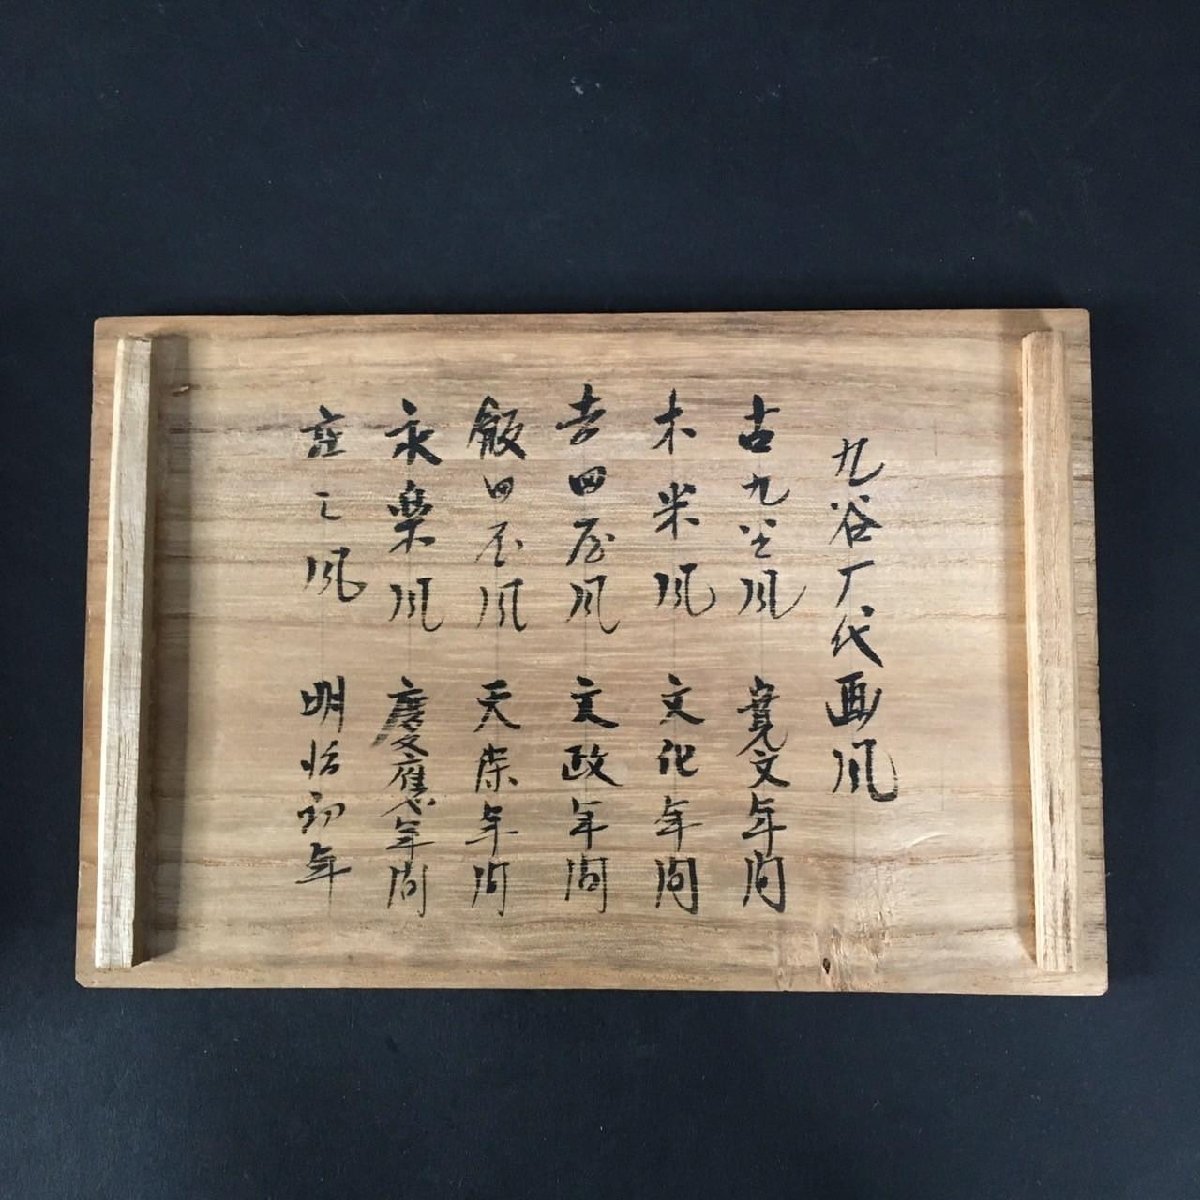 九谷厂代画風
古九谷風 寛文年間
木米風 文化年間
吉田屋風 文政年間
飯田屋風 天保年間
永楽風 慶應年間
庄三風 明治初年